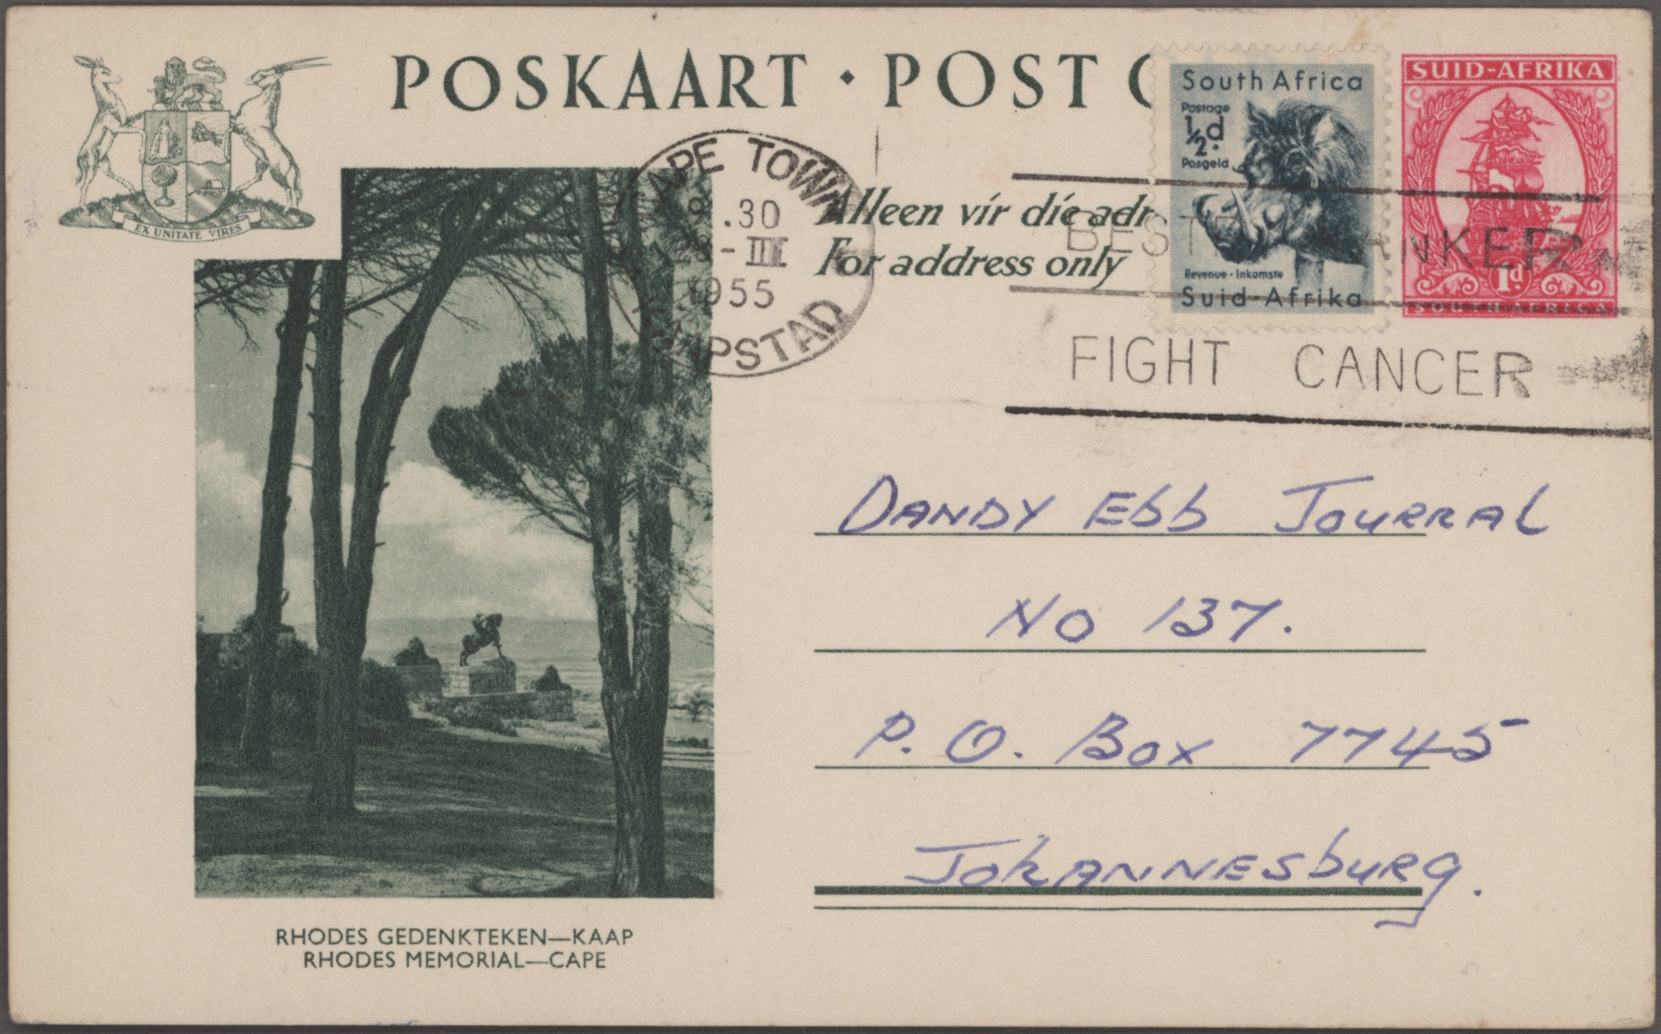 POSKAART · POST C
EX UNITATE VIRES
South Africa
Postage
½d.
Posgeld
Revenue · Inkomste
Suid-Afrika
SUID-AFRIKA
1d
SOUTH AFRICA
CAPE TOWN
.30
-III
1955
KAAPSTAD
Alleen vir die adr
For address only
BEST ANKER
FIGHT CANCER
DANDY Ebb JOURRAL
No 137.
P.O. Box 7745
JOhANNESburg.
RHODES GEDENKTEKEN—KAAP
RHODES MEMORIAL—CAPE